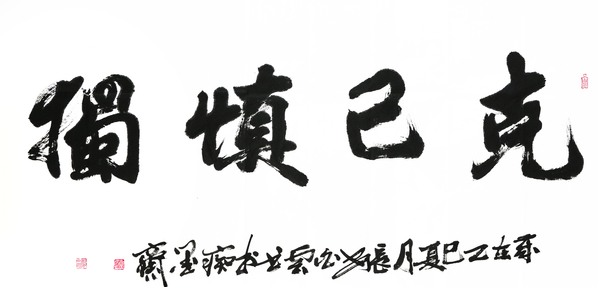 克己慎獨
歲在乙巳夏月張
書於痴墨齋